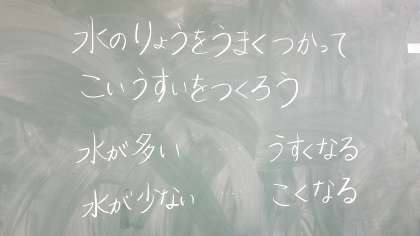 水のりょうをうまくつかって
こいうすいをつくろう
水が多い … うすくなる
水が少ない … こくなる